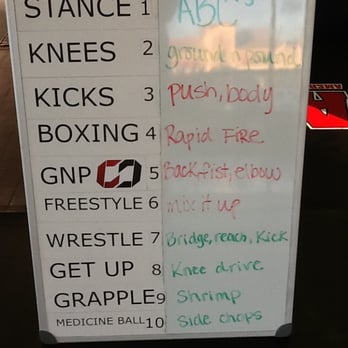 STANCE 1 ABC
KNEES 2 ground n pound
KICKS 3 push, body
BOXING 4 Rapid FIRE
GNP 5 Backfist, elbow
FREESTYLE 6 mix it up
WRESTLE 7 Bridge, reach, Kick
GET UP 8 Knee drive
GRAPPLE 9 Shrimp
MEDICINE BALL 10 Side chops